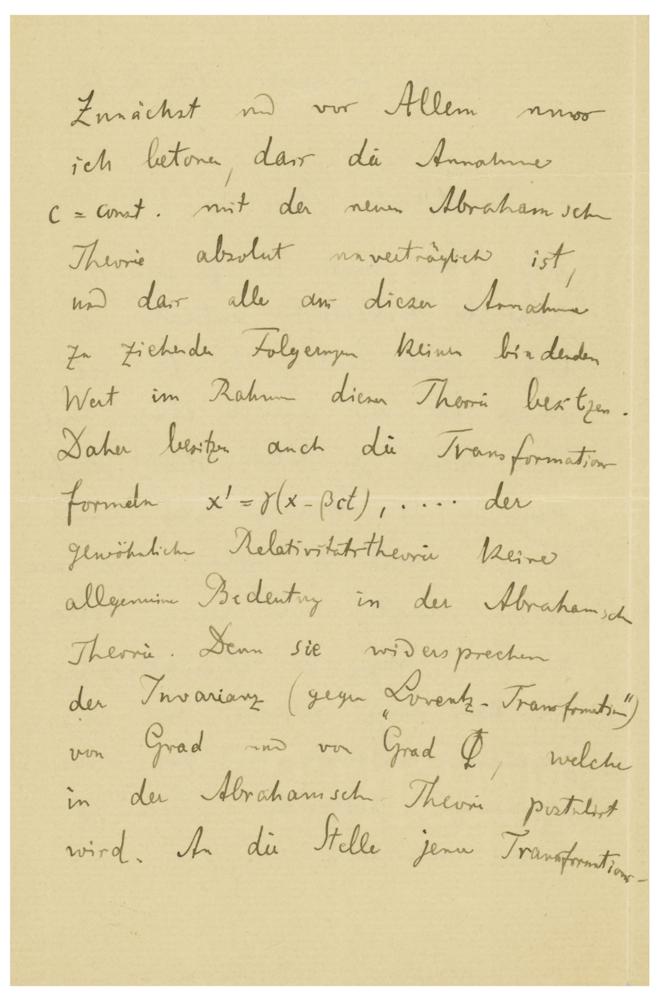 Zunächst und vor Allem muss
ich betonen, dass die Annahme
c = const. mit der neuen Abrahamschen
Theorie absolut unverträglich ist,
und dass alle aus dieser Annahme
zu ziehenden Folgerungen keinen bindenden
Wert im Rahmen dieser Theorie besitzen.
Daher besitzen auch die Transformations
formeln x' = γ(x - βct), .... der
gewöhnlichen Relativitätstheorie keine
allgemeine Bedeutung in der Abrahamschen
Theorie. Denn sie widersprechen
der Invarianz (gegen „Lorentz-Transformation")
von Grad und von Grad Φ, welche
in der Abrahamschen Theorie postuliert
wird. An die Stelle jener Transformations-